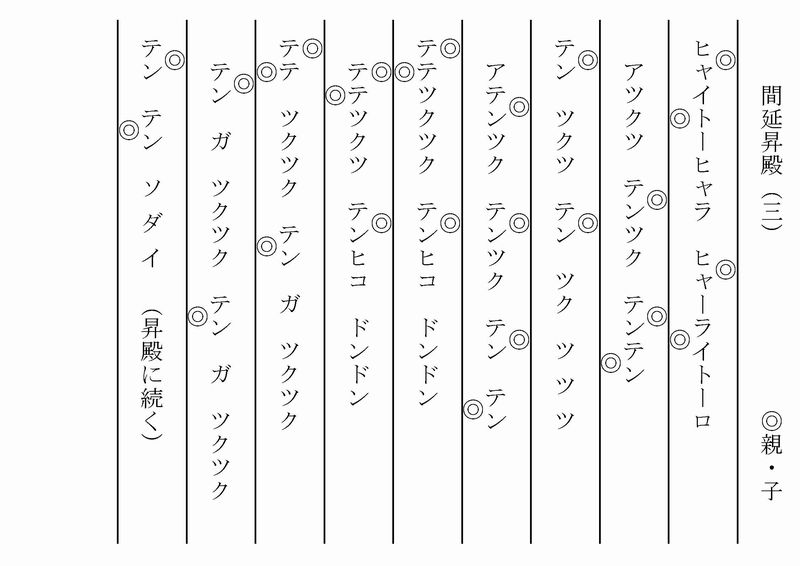 間延昇殿（三） ◎親・子
ヒャイトーヒャラ ヒャーライトーロ
アツクツ テンツク テンテン
テン ツクツ テン ツク ツ ツ ツ
アテンツク テンツク テン テン
テテツクツク テンヒコ ドンドン
テテツクツ テンヒコ ドンドン
テテ ツクツク テン ガ ツクツク
テン ガ ツクツク テン ガ ツクツク
テン テン ソ ダ イ （昇殿に続く）